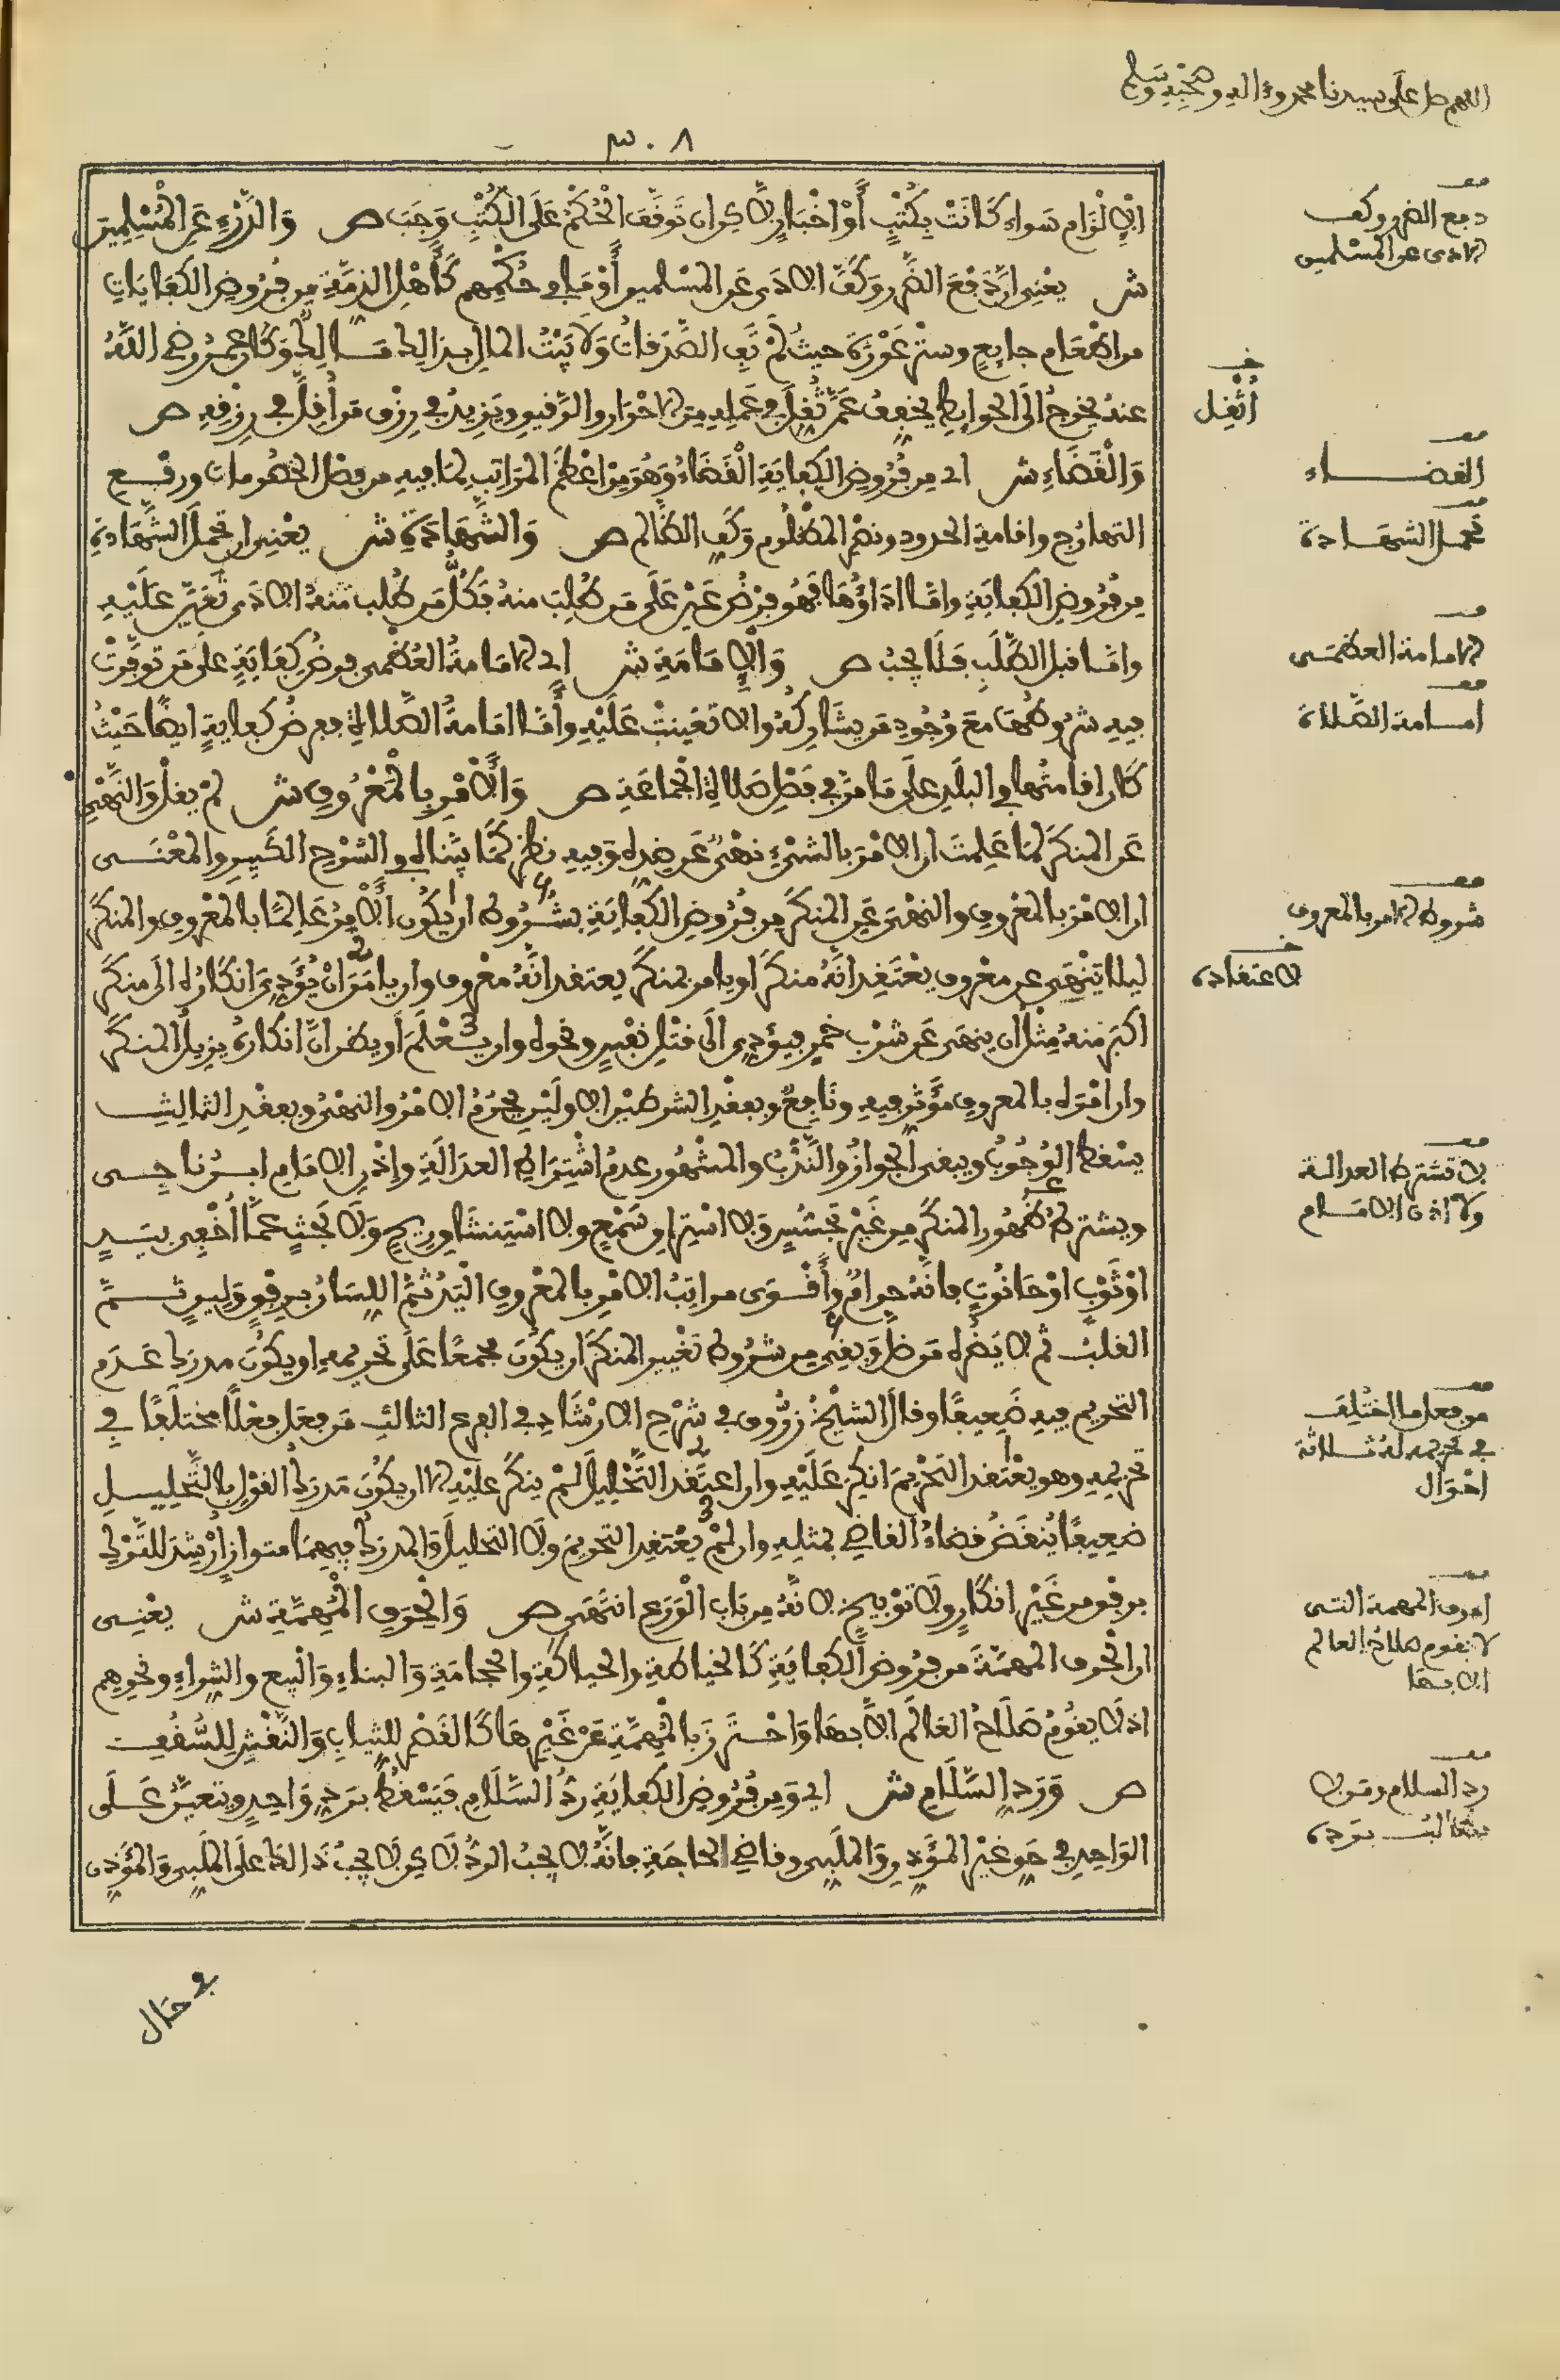 اللهم صل على سيدنا محمد وءاله وصحبه وسلم
٣٠٨
الإلزام سواء كانت بكتب أو اخبار لاكن ان توقف الحكم على الكتب وجب ص وَالدَّرْءِ عَنِ الْمُسْلِمِينَ
ش يعني ان دفع الضرر وكف الأذى عن المسلمين أو ما في حكمهم كأهل الذمة من فروض الكفايات
من اطعام جايع وستر عورة حيث لم تف الصدقات ولا بيت المال بذالك مالك وكان عمر رضي الله
عنه يخرج الى الحوايط يخفف عمن ثقل في عمله من الاحرار والرقيق ويزيد في رزق من أقل في رزقه ص
وَالْقَضَاءِ ش اي من فروض الكفاية القضاء وهو من اعظم المراتب لما فيه من فصل الخصومات ورفع
التهارج واقامة الحدود ونصر المظلوم وكف الظالم ص وَالشَّهَادَةِ ش يعني ان تحمل الشهادة
من فروض الكفاية واما اداؤها فهو فرض عين على من طلبت منه فكل من طلب منه الأدى تعين عليه
واما قبل الطلب فلا يجب ص وَالإِمَامَةِ ش اي الامامة العظمى فرض كفاية على من توفرت
فيه شروطها مع وجود من يشاركه والا تعينت عليه وأما امامة الصلاة ففرض كفاية ايضا حيث
كان اقامتها في البلد على ما مر في فصل صلاة الجماعة ص وَالأَمْرِ بِالْمَعْرُوفِ ش لم يقل والنهي
عن المنكر لما علمت ان الأمر بالشيء نهي عن ضده وفيه نظر كما بيناه في الشرح الكبير والمعنى
ان الأمر بالمعروف والنهي عن المنكر من فروض الكفاية بشروط ان يكون الأمر عالما بالمعروف والمنكر
ليلا ينهى عن معروف يعتقد انه منكر او يامر بمنكر يعتقد انه معروف وان يامن ان يؤدي انكاره الى منكر
اكبر منه مثل ان ينهى عن شرب خمر فيؤدي الى قتل نفس ونحوه وان يعلم أو يظن ان انكاره يزيل المنكر
وان امره بالمعروف مؤثر فيه ونافع وبفقد الشرطين الاولين يحرم الأمر والنهي وبفقد الثالث
يسقط الوجوب ويبقى الجواز والندب والمشهور عدم اشتراط العدالة وإذن الامام ابن ناجي
ويشترط ظهور المنكر من غير تجسس ولا استراق سمع ولا استنشاق ريح ولا بحث عما أخفي بيد
او ثوب او حانوت فانه حرام وأقوى مراتب الأمر بالمعروف اليد ثم اللسان برفق ولين ثم
القلب ثم لا يضره من ظل وبقي من شروط تغيير المنكر ان يكون مجمعا على تحريمه او يكون مدرك عدم
التحريم فيه ضعيفا وقال الشيخ زروق في شرح الارشاد في الفرع الثالث من فعل فعلا مختلفا في
تحريمه وهو يعتقد التحريم انكر عليه وان اعتقد التحليل لم ينكر عليه الا ان يكون مدرك القول بالتحليل
ضعيفا ينقض قضاء القاضي بمثله وان لم يعتقد التحريم ولا التحليل والمدرك فيهما متواز ارشد للترك
برفق من غير انكار ولا توبيخ لأنه من باب الورع انتهى ص وَالْحِرَفِ الْمُهِمَّةِ ش يعني
ان الحرف المهمة من فروض الكفاية كالخياطة والحياكة والحجامة والبناء والبيع والشراء ونحوهم
اذ لا يقوم صلاح العالم الا بها واحترز بالمهمة عن غيرها كالقصر للثياب والنقش للسقف
ص وَرَدِّ السَّلَامِ ش اي ومن فروض الكفاية رد السلام فيسقط برد واحد ويتعين على
الواحد في حق غير المؤذن والملبي وقاضي الحاجة فانه لا يجب الرد لاكن لا يجب ذالك على الملبي والمؤذن
في حال
دفع الضرر وكف
الاذى عن المسلمين
أثقل
القضاء
تحمل الشهادة
الامامة العظمى
امامة الصلاة
شروط الامر بالمعروف
لاعتقاده
لا تشترط العدالة
ولا اذن الامام
من فعل ما اختلف
في تحريمه له ثلاثة
احوال
الحرف المهمة التي
لا يقوم صلاح العالم
الا بها
رد السلام ومن لا
يطالب برده